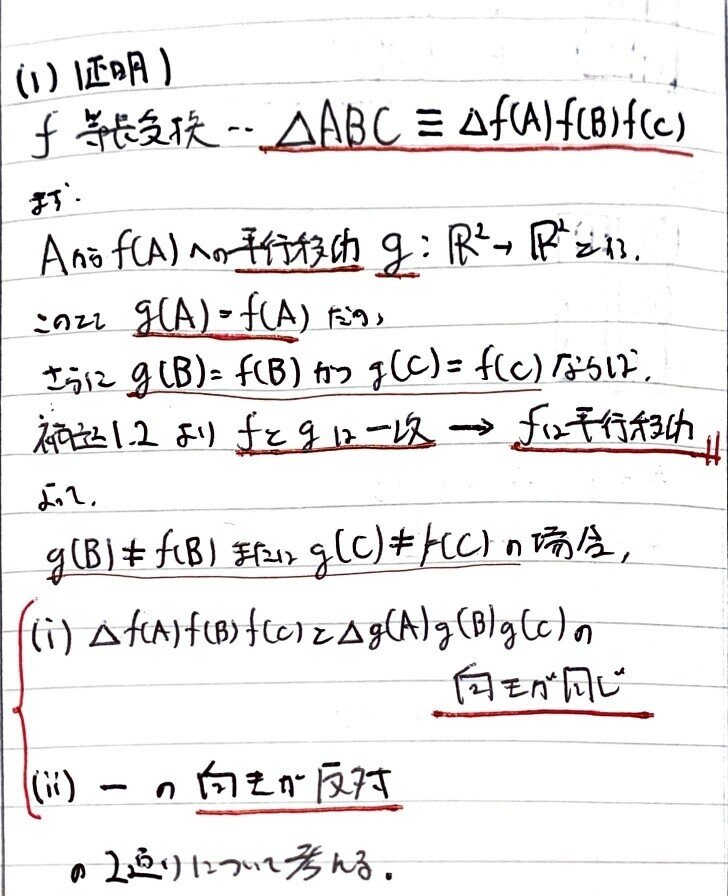 (1) (証明)
f 等長変換 ‥ △ABC ≡ △f(A)f(B)f(C)
まず.
Aから f(A) への平行移動 g : ℝ² → ℝ² とする.
このとき g(A) = f(A) だが,
さらに g(B) = f(B) かつ g(C) = f(C) ならば,
補題1.2 より fとgは一致 → fは平行移動
よって.
g(B) ≠ f(B) または g(C) ≠ f(C) の場合,
(i) △f(A)f(B)f(C)と△g(A)g(B)g(C)の
向きが同じ
(ii) ー の 向きが反対
の2通りについて考える.